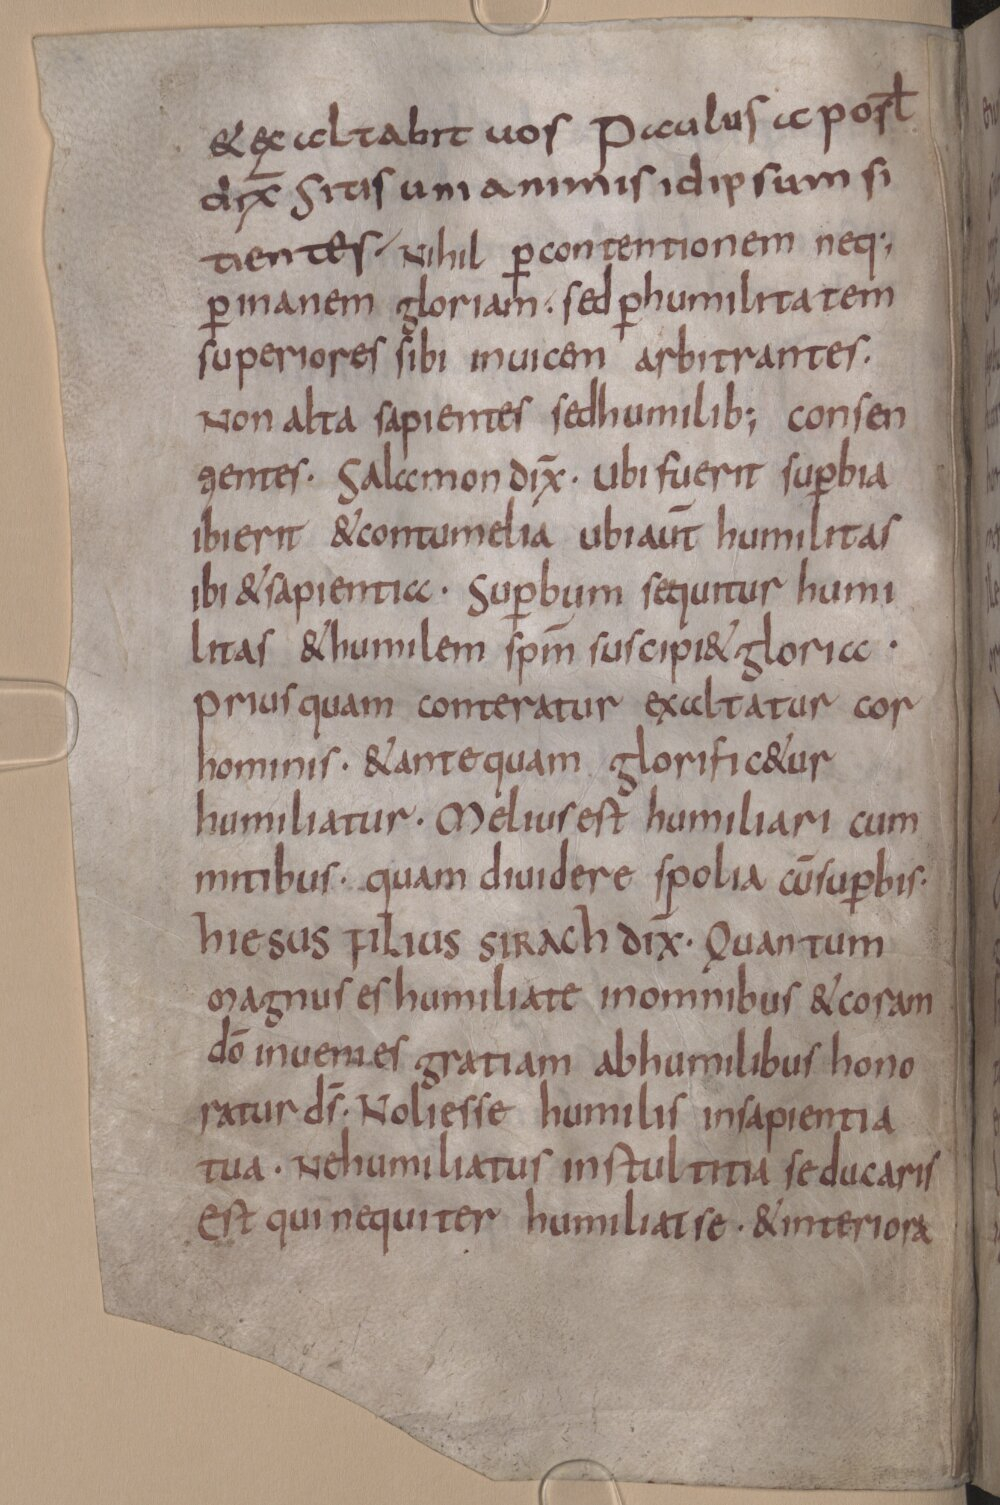 & exaltabit uos Paulus apostl
dix̄ Sitis unanimis idipsum si
tientes. Nihil p̲contentionem neq;,
p̲inanem gloriam. sed p̲humilitatem
superiores sibi inuicem arbitrantes.
Non alta sapientes sedhumilib; consen
gentes. Salamon dix̄. Ubi fuerit sup̲bia
ibierit &contumelia ubiaut̄ humilitas
ibi &sapientia. Sup̲bum sequitur humi
litas &humilem sp̄m suscipi& gloria.
Priusquam conteratur exaltatur cor
hominis. &antequam glorific&ur
humiliatur. Meliusest humiliari cum
mitibus. quam diuidere spolia cūsup̲bis.
hiesus filius sirach dix̄. Quantum
magnus es humiliate inomnibus &coram
dō inuenies gratiam abhumilibus hono
ratur ds̄. Noliesse humilis insapientia
tua. Nehumiliatus instultitia seducaris
Est qui nequiter humiliat se. &interiora